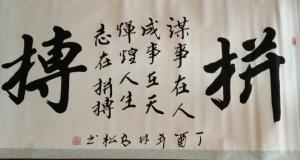 拼搏
谋事在人
成事在天
煇煌人生
志在拼搏
丁酉年
松书